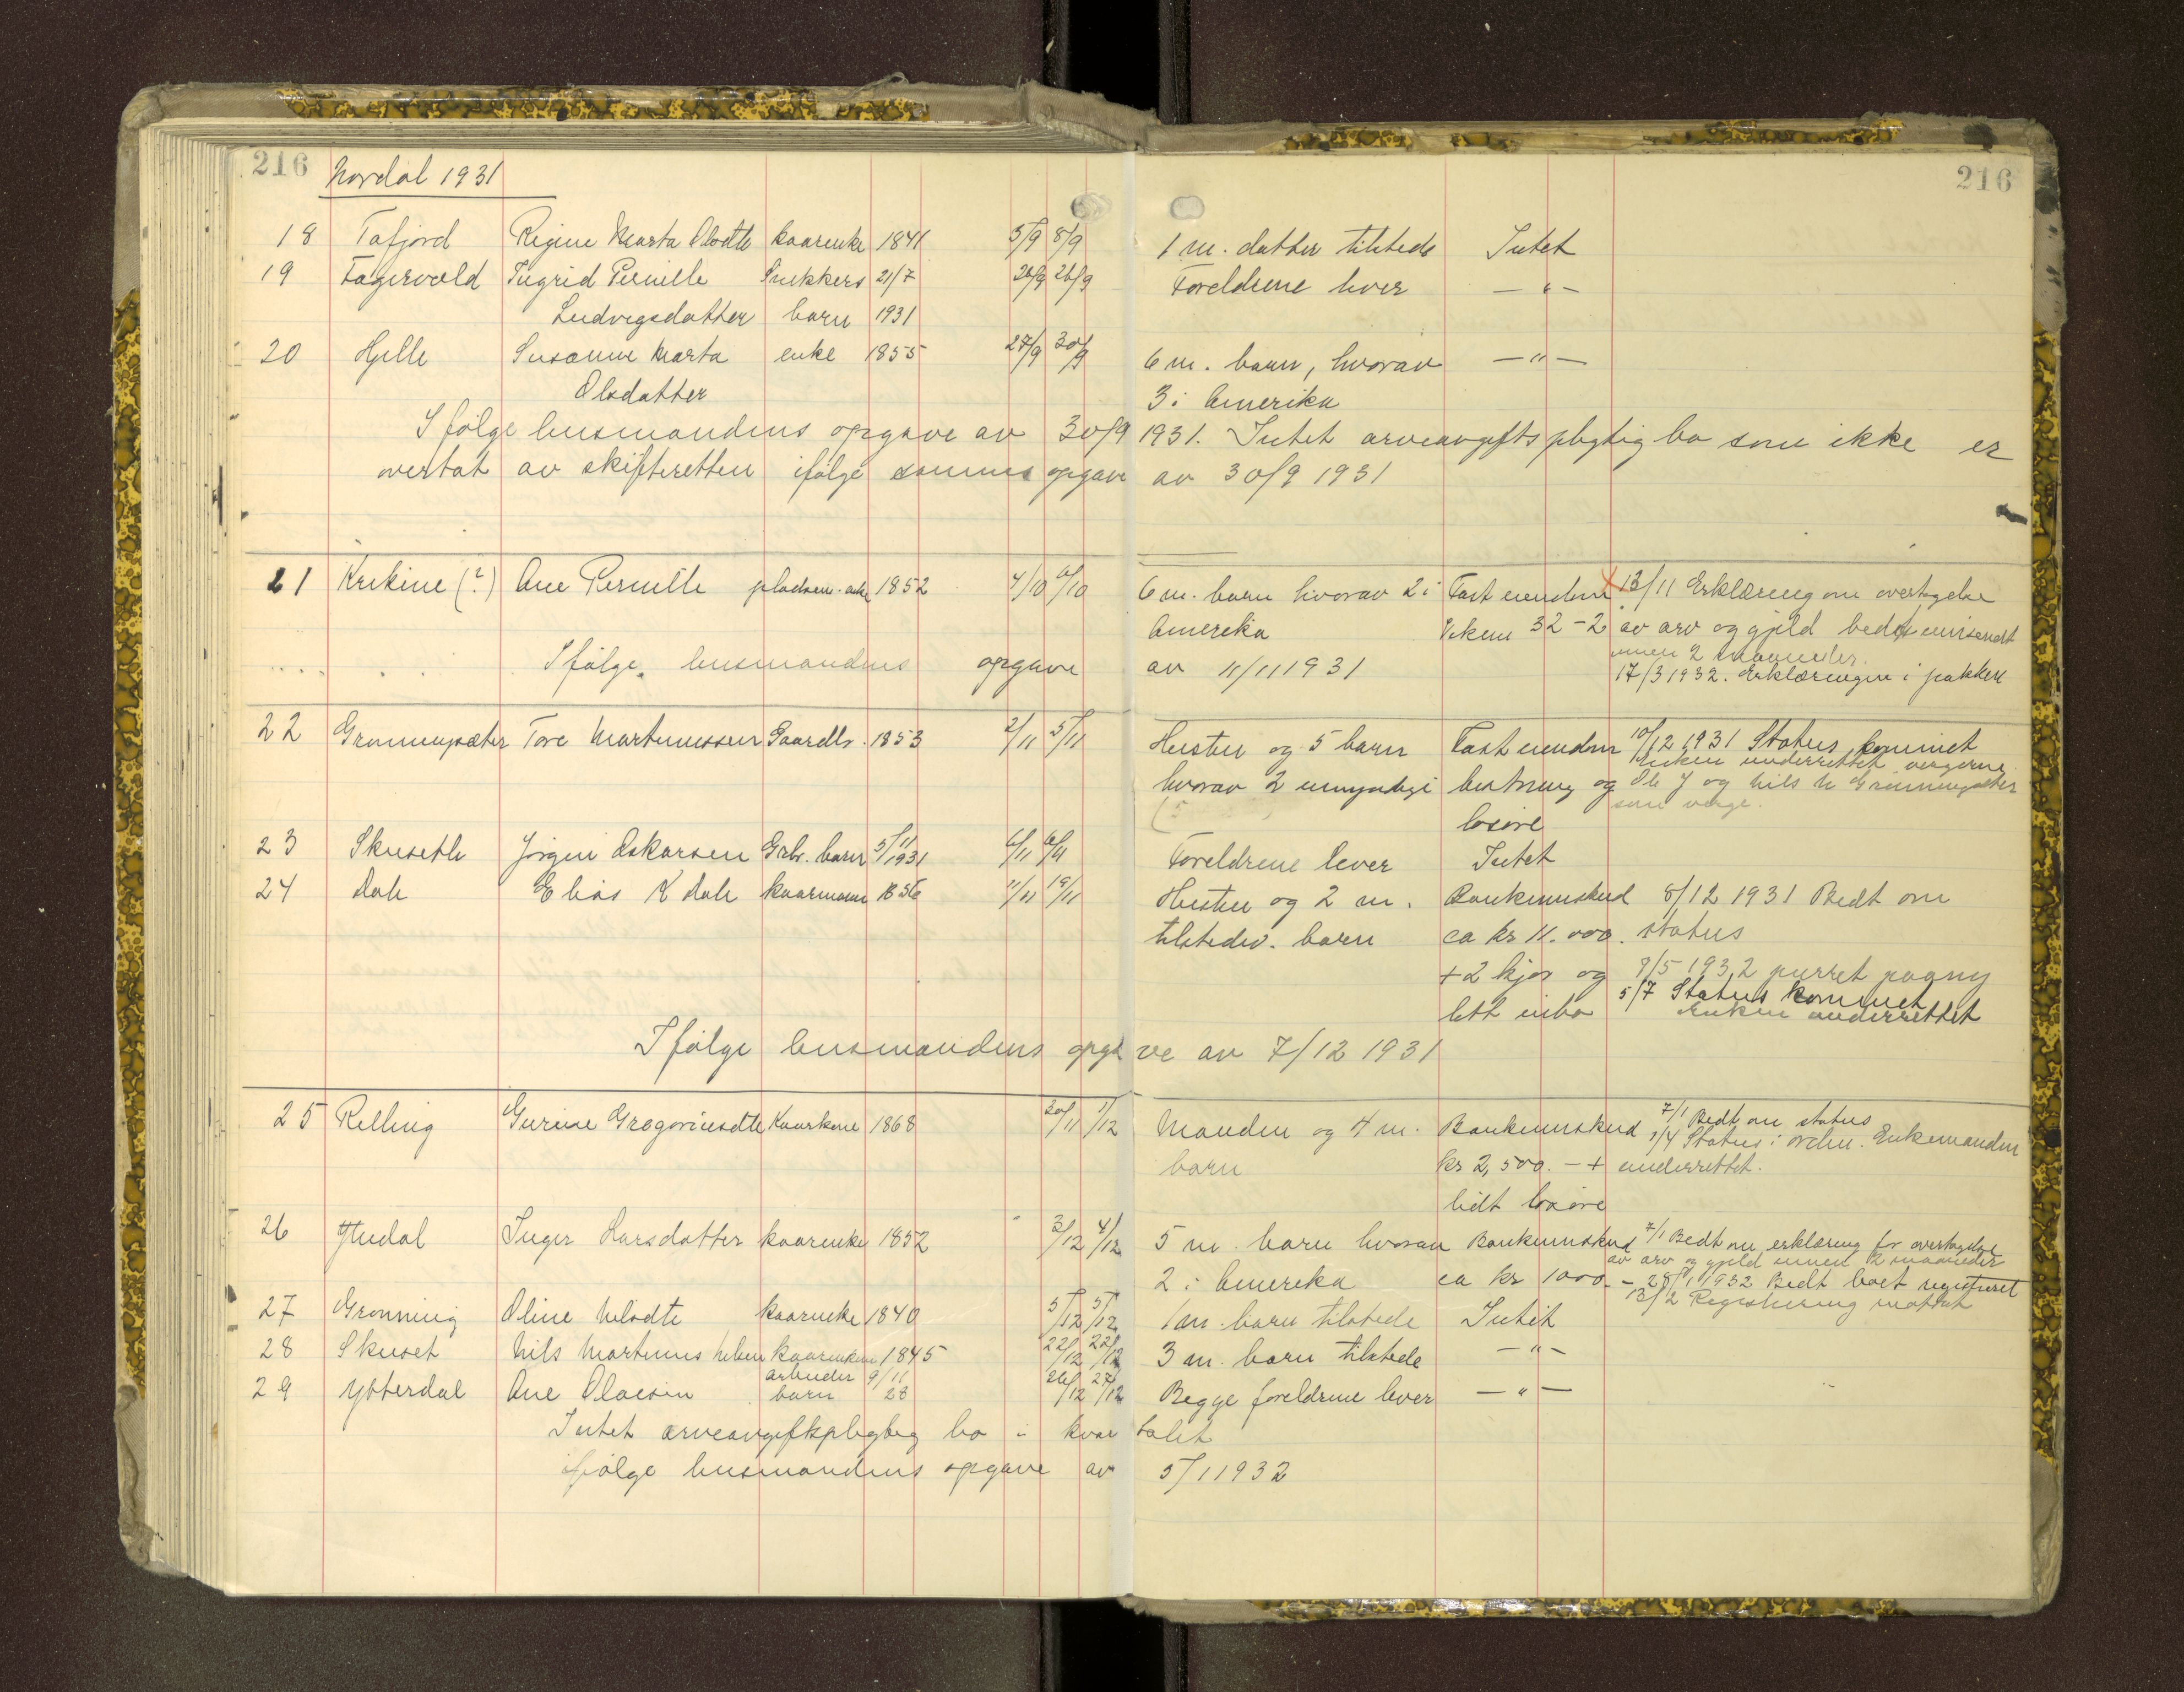 216 Nordal 1931 216
18 Tafjord Regine Marta Olsdtr kaarenke 1841 5/9 8/9 1 m. datter tilstede Intet
19 Fagervold Ingrid Pernille Snekkers 21/7 26/9 26/9 Foreldrene lever — " —
Ludvigsdatter barn 1931
20 Hjelle Susanne Marta enke 1855 27/9 30/9 6 m. barn, hvorav — " —
Olsdatter 3 i Amerika
Ifølge lensmandens opgave av 30/9 1931. Intet arveavgiftspligtig bo som ikke er
overtat av skifteretten ifølge sammes opgave av 30/9 1931
21 (?) Ane Pernille pladsen. enke 1852 4/10 6/10 6 m. barn hvorav 2 i Fast eiendom 13/11 Erklæring om overtagelse
Amerika 32-2 av arv og gjeld bedt innsendt
innen 2 maaneder.
Ifølge lensmandens opgave av 11/11 1931 17/3 1932. Erklæringen i pakken
22 Grønningsæter Tore Martinussen Gaardbr. 1853 2/11 5/11 Hustru og 5 barn Fast eiendom 10/12 1931 Status kommet
Enken underrettet vergerne
hvorav 2 umyndige besetning og Ole J og Nils N Grønningsæter
(5 løsøre som verge.
23 Skuseth Jørgen Oskarsen Grbr. barn 5/11 1931 6/11 6/11 Foreldrene lever Intet
24 Dale Elias K Dale kaarmann 1856 11/11 19/11 Hustru og 2 m. Bankinnskud 8/12 1931 Bedt om
tilstedev. barn ca kr 11.000. status
+ 2 kjør og 9/5 1932 purret paany
litt inbo 5/7 Status kommet
Enken underrettet
Ifølge lensmandens opgave av 7/12 1931
25 Relling Gurine Gregoriusdtr Kaarkone 1868 20/11 1/12 Manden og 4 m. Bankinnskud 7/1 Bedt om status
9/4 Status i orden. Enkemanden
barn kr 2,500.— + underrettet.
lidt løsøre
26 Yttedal Inger Larsdatter kaarenke 1852 3/12 4/12 5 m. barn hvorav Bankinnskud 7/1 Bedt om erklæring for overtagelse
av arv og gjeld innen 2 maaneder
2 i Amerika ca kr 1000.— 28/1 1932 Bedt boet registreret
13/2 Registrering mottat
27 Grønning Oline Nilsdtr kaarenke 1840 5/12 5/12 1 m. barn tilstede Intet
28 Skuset Nils Martinus Nilsen kaarenkem 1845 22/12 22/12 3 m. barn tilstede — " —
29 Ytterdal Ane Olaesen arbeider barn 9/11 28 26/12 27/12 Begge foreldrene lever — " —
Intet arveavgiftspligtig bo i kvartalet
ifølge lensmandens opgave av 5/1 1932